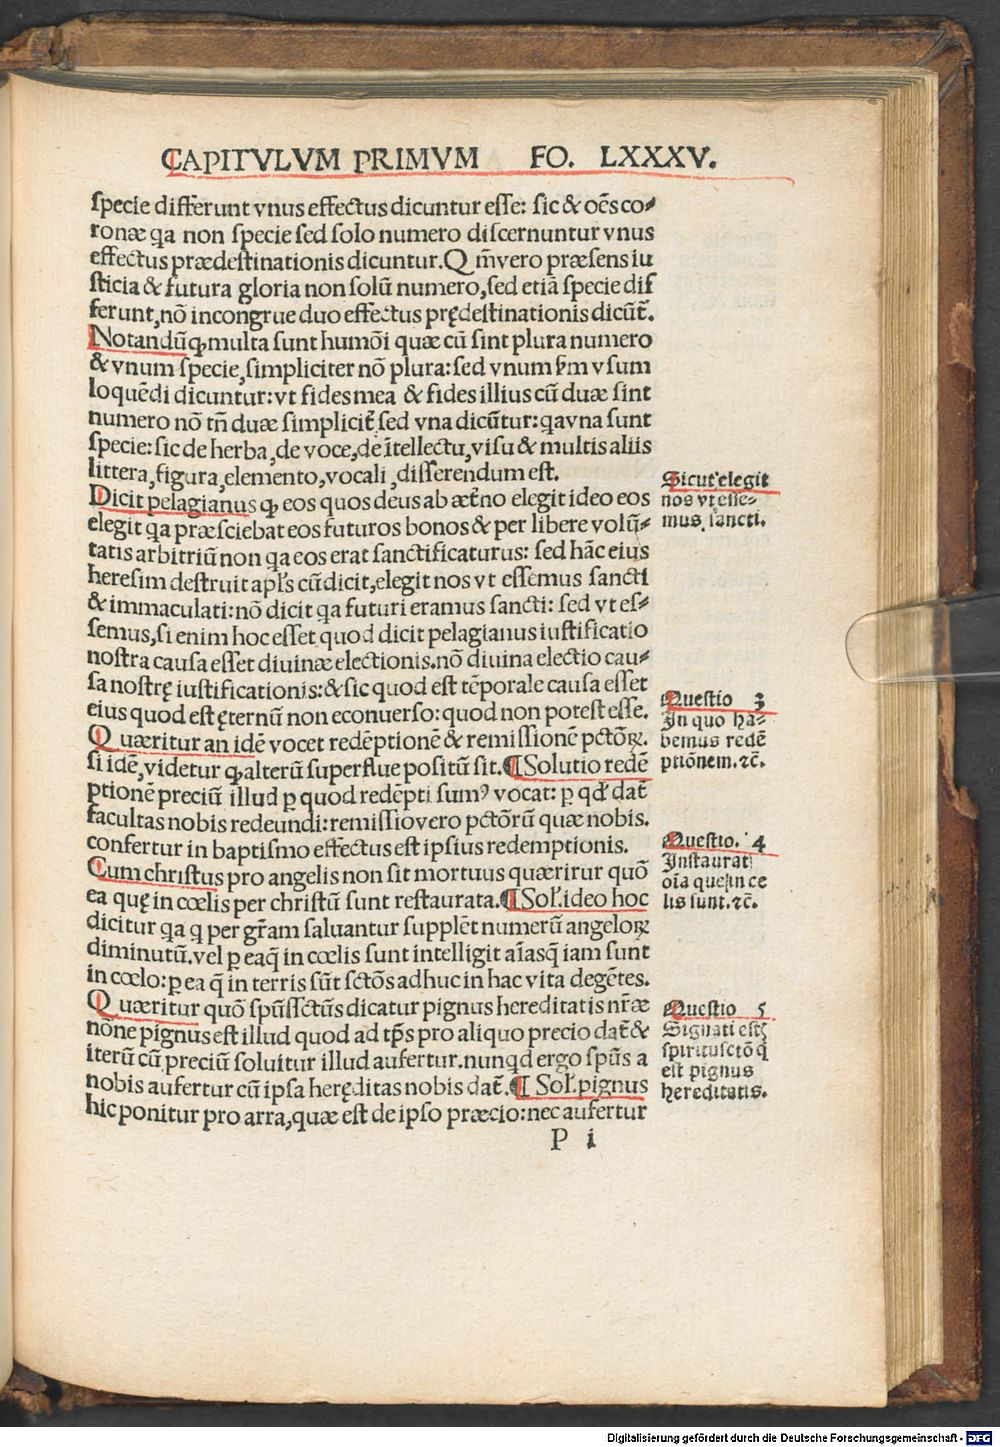 CAPITVLVM PRIMVM FO. LXXXV.
specie differunt vnus effectus dicuntur esse: sic & oēs co⸗
ronæ qa non specie sed solo numero discernuntur vnus
effectus prædestinationis dicuntur. Q m̄vero præsens iu
sticia & futura gloria non solū numero, sed etiā specie dif
ferunt, nō incongrue duo effectus prędestinationis dicūt̄.
Notandū ꝙ multa sunt humōi quæ cū sint plura numero
& vnum specie, simpliciter nō plura: sed vnum ẜm vsum
loquēdi dicuntur: vt fides mea & fides illius cū duæ sint
numero nō tn̄ duæ simplicit̄ sed vna dicūtur: qa vna sunt
specie: sic de herba, de voce, de ītellectu, visu & multis aliis
littera, figura, elemento, vocali, disserendum est.
Dicit pelagianus ꝙ eos quos deus ab æt̄no elegit ideo eos
elegit qa præsciebat eos futuros bonos & per libere volū⸗
tatis arbitriū non qa eos erat sanctificaturus: sed hāc eius
heresim destruit apl's cū dicit, elegit nos vt essemus sancti
& immaculati: nō dicit qa futuri eramus sancti: sed vt es⸗
semus, si enim hoc esset quod dicit pelagianus iustificatio
nostra causa esset diuinæ electionis. nō diuina electio cau⸗
sa nostrę iustificationis: & sic quod est tēporale causa esset
eius quod est ęternū non econuerso: quod non potest esse.
Q uæritur an idē vocet redēptionē & remissionē pctōꝝ.
si idē, videtur ꝙ alterū superflue positū sit. ¶ Solutio redē
ptionē preciū illud p quod redēpti sumꝰ vocat: p qđ dat̄
facultas nobis redeundi: remissio vero pctōrū quæ nobis.
confertur in baptismo effectus est ipsius redemptionis.
Cum christus pro angelis non sit mortuus quærirur quō
ea quę in cœlis per christū sunt restaurata. ¶ Sol'. ideo hoc
dicitur qa q per gr̄am saluantur supplēt numerū angeloꝝ
diminutū. vel p ea q̄ in cœlis sunt intelligit aīas q̄ iam sunt
in cœlo: p ea q̄ in terris sūt sctōs adhuc in hac vita degētes.
Q uæritur quō spūssctūs dicatur pignus hereditatis nr̄æ
nōne pignus est illud quod ad tp̄s pro aliquo precio dat̄ &
iterū cū preciū soluitur illud aufertur. nunqd ergo spūs a
nobis aufertur cū ipsa heręditas nobis dat̄. ¶ Sol'. pignus
hic ponitur pro arra, quæ est de ipso præcio: nec aufertur
P i
Sicut elegit
nos vt esse⸗
mus. sancti.
Questio 3
In quo ha⸗
bemus redē
ptionem. ⁊c̄.
Questio. 4
Instaurati
oīa que in ce
lis sunt. ⁊c̄.
Questio 5
Signati estꝫ
spiritu sctō q̄
est pignus
hereditatis.
Digitalisierung gefördert durch die Deutsche Forschungsgemeinschaft - DFG